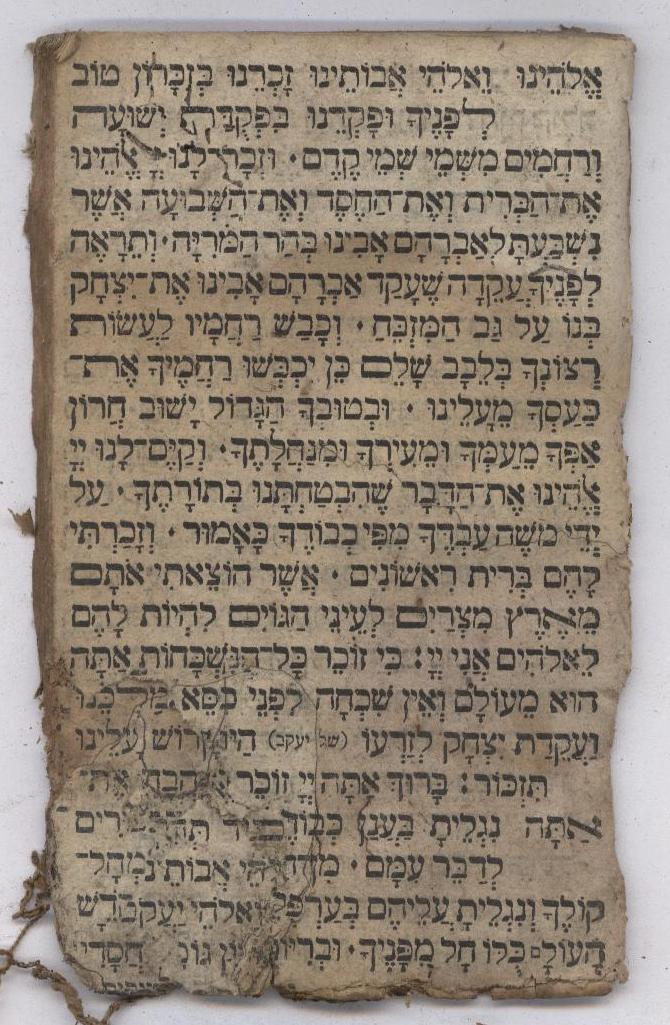 אֱלֹהֵינוּ וֵאלֹהֵי אֲבוֹתֵינוּ זָכְרֵנוּ בְּזִכָּרוֹן טוֹב
לְפָנֶיךָ וּפָקְדֵנוּ בִּפְקֻדַּת יְשׁוּעָה
וְרַחֲמִים מִשְּׁמֵי שְׁמֵי קֶדֶם · וּזְכָר־לָנוּ יְיָ אֱלֹהֵינוּ
אֶת־הַבְּרִית וְאֶת־הַחֶסֶד וְאֶת־הַשְּׁבוּעָה אֲשֶׁר
נִשְׁבַּעְתָּ לְאַבְרָהָם אָבִינוּ בְּהַר הַמֹּרִיָּה · וְתֵרָאֶה
לְפָנֶיךָ עֲקֵדָה שֶׁעָקַד אַבְרָהָם אָבִינוּ אֶת־יִצְחָק
בְּנוֹ עַל גַּב הַמִּזְבֵּחַ · וְכָבַשׁ רַחֲמָיו לַעֲשׂוֹת
רְצוֹנְךָ בְּלֵבָב שָׁלֵם כֵּן יִכְבְּשׁוּ רַחֲמֶיךָ אֶת־
כַּעַסְךָ מֵעָלֵינוּ · וּבְטוּבְךָ הַגָּדוֹל יָשׁוּב חֲרוֹן
אַפְּךָ מֵעַמְּךָ וּמֵעִירְךָ וּמִנַּחֲלָתֶךָ · וְקַיֶּם־לָנוּ יְיָ
אֱלֹהֵינוּ אֶת־הַדָּבָר שֶׁהִבְטַחְתָּנוּ בְּתוֹרָתֶךָ · עַל
יְדֵי מֹשֶׁה עַבְדֶּךָ מִפִּי כְבוֹדֶךָ כָּאָמוּר · וְזָכַרְתִּי
לָהֶם בְּרִית רִאשׁוֹנִים · אֲשֶׁר הוֹצֵאתִי אֹתָם
מֵאֶרֶץ מִצְרַיִם לְעֵינֵי הַגּוֹיִם לִהְיוֹת לָהֶם
לֵאלֹהִים אֲנִי יְיָ : כִּי זוֹכֵר כָּל־הַנִּשְׁכָּחוֹת אַתָּה
הוּא מֵעוֹלָם וְאֵין שִׁכְחָה לִפְנֵי כִסֵּא
וַעֲקֵדַת יִצְחָק לְזַרְעוֹ (של יעקב) הַיּוֹם עָלֵינוּ
תִּזְכּוֹר : בָּרוּךְ אַתָּה יְיָ זוֹכֵר
אַתָּה נִגְלֵיתָ בַּעֲנַן
לְדַבֵּר עִמָּם · אֲבוֹתֵינוּ
קוֹלֶךָ וְנִגְלֵיתָ עֲלֵיהֶם בְּעַרְפְּלֵי
הָעוֹלָם כֻּלּוֹ חָל מִפָּנֶיךָ ·